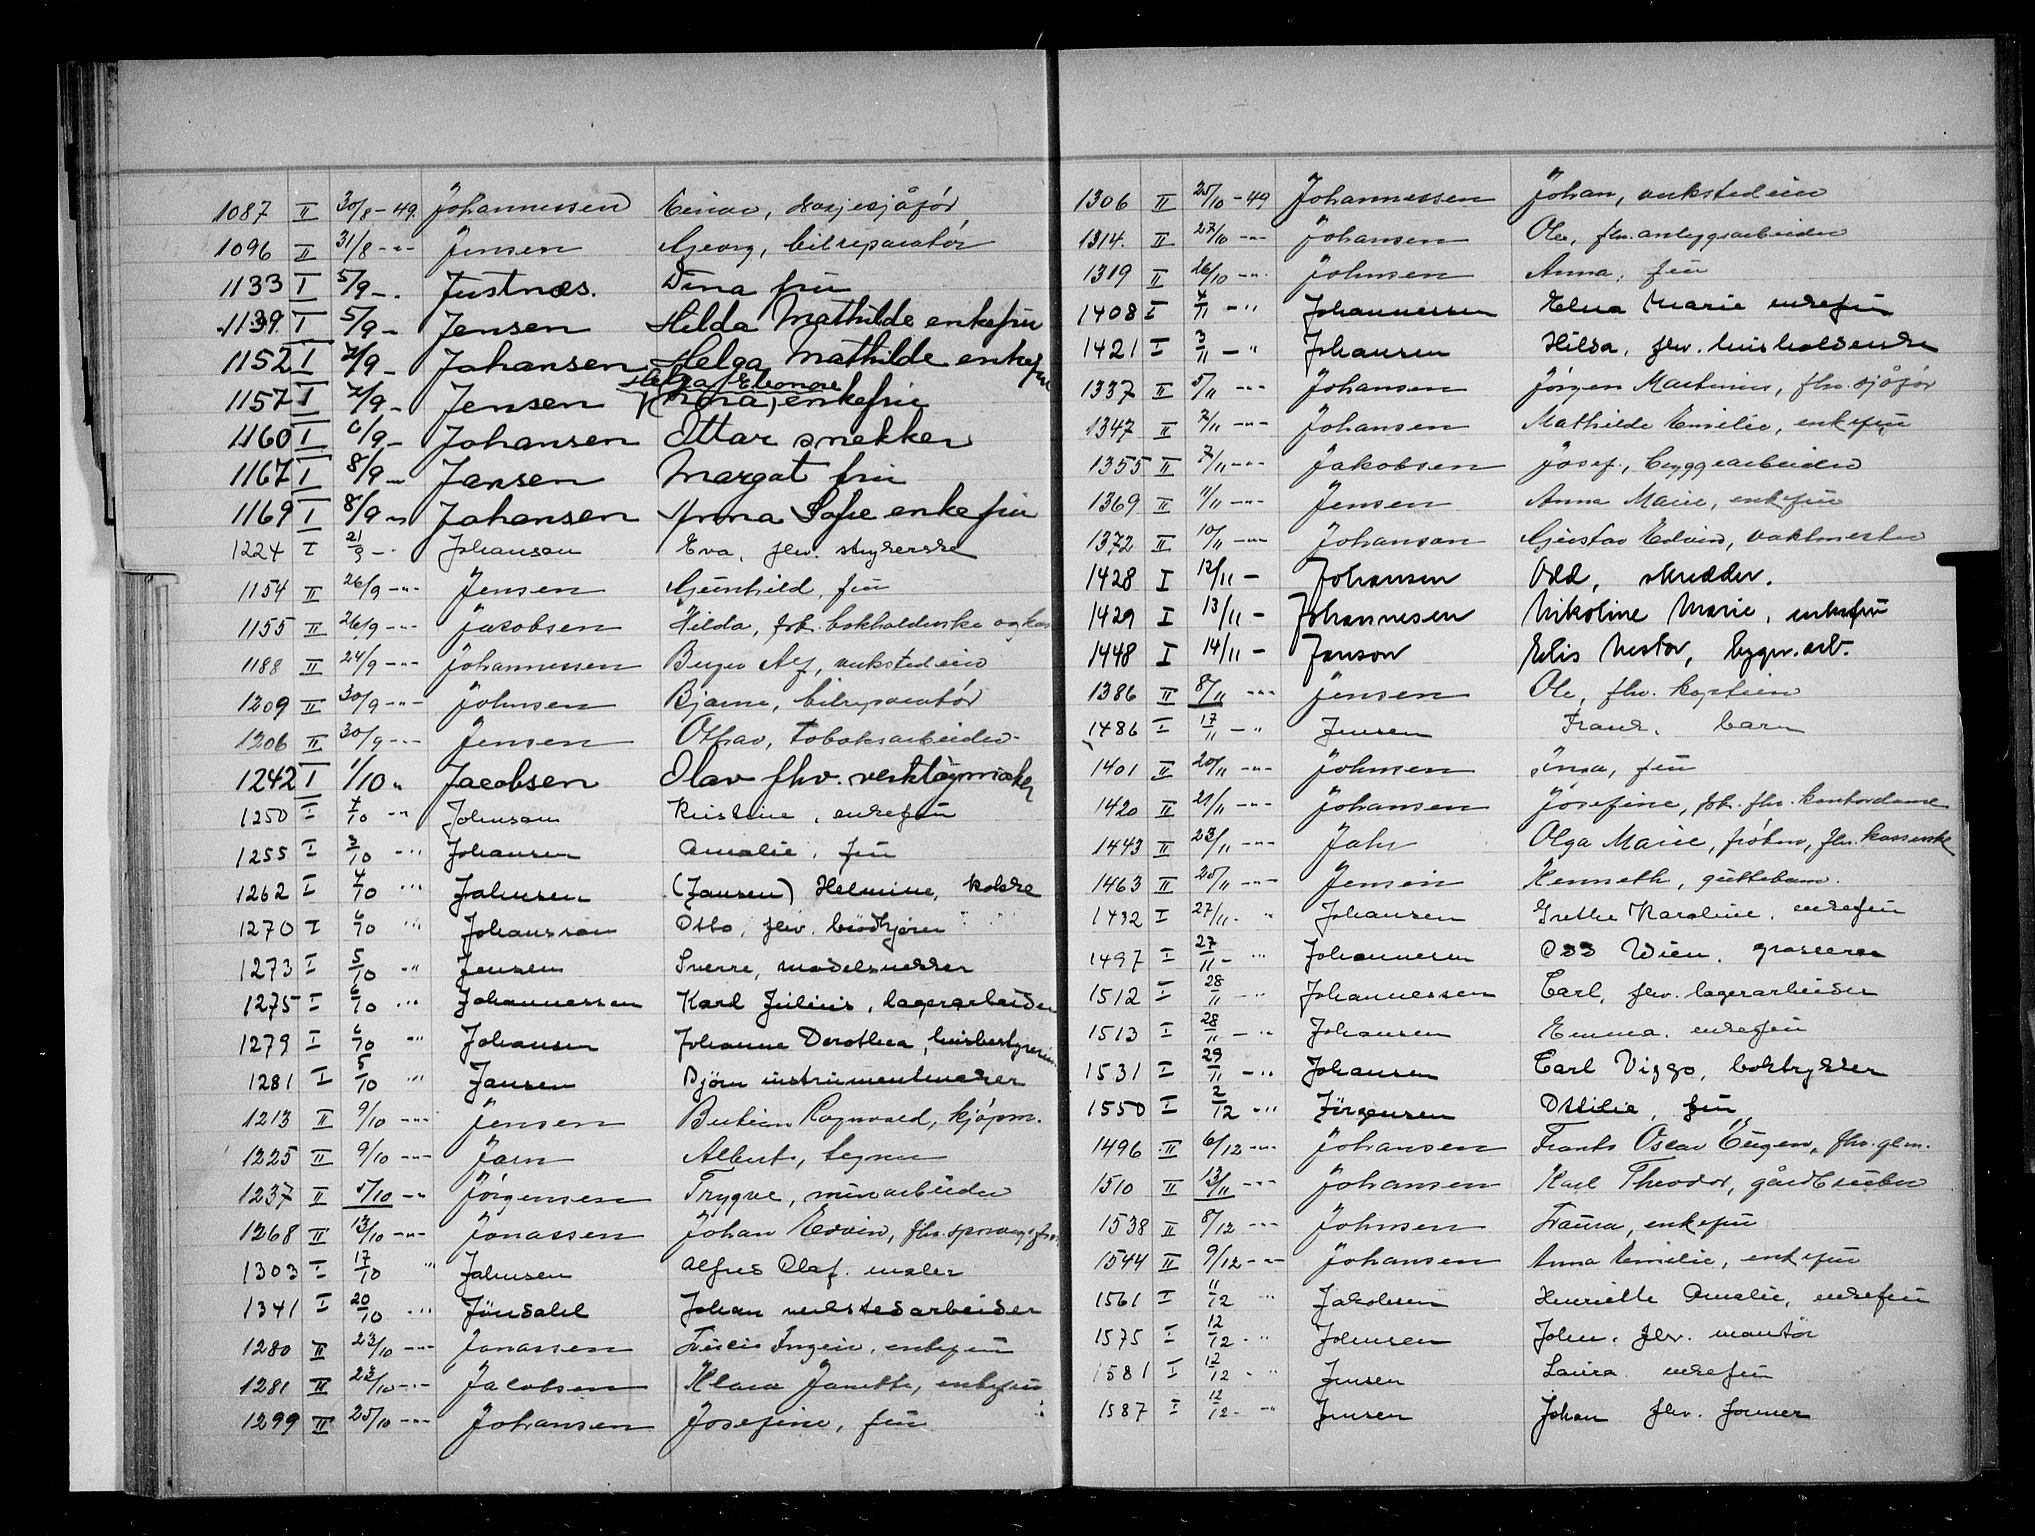 1087 II 30/8-49. Johannessen Einar, drosjesjåfør
1096 II 31/8 -"- Jensen Georg, bilreparatør
1133 I 5/9 -. Justnæs. Dina fru
1139 I 5/9 - Jensen Hilda Mathilde enkefru
1152 I 7/9 - Johansen Helga Mathilde enkefru
Helga Eleonore
1157 I 7/9 - Jensen (Nora) enkefru
1160 I 6/9 - Johansen Ottar snekker
1167 I 8/9 - Jansen Margat fru
1169 I 8/9 -" Johansen Anna Sofie enkefru
1224 I 21/9 -. Johanson Eva, fhv. strykerske
1154 II 26/9 -"- Jensen Gunhild, fru
1155 II 26/9 -"- Jacobsen Hilda, frk. bokholderske og kas
1188 II 24/9 -"- Johannessen Birger Alf, verkstedeier
1209 II 30/9 -"- Johnsen Bjarne, bilreparatør
1206 II 30/9 -"- Jensen Othar, tobaksarbeider
1242 I 1/10 " Jacobsen Olav fhv. verktøymaker
1250 I 1/10 -" Johnsen Kristine, enkefru
1255 I 3/10 -" Johansen Amalie, fru
1262 I 4/10 -" Johnsen (Jansen) Helmine, kokke
1270 I 6/10 -" Johansson Otto, fhv. brødkjører
1273 I 5/10 -" Jensen Sverre, modelsnekker
1275 I 6/10 -" Johannessen Karl Julius, lagerarbeider
1279 I 6/10 -" Johansen Johanne Dorothea, husbestyrerinne
1281 I 5/10 -" Jansen Bjørn instrumentmaker
1213 II 9/10 -"- Jensen Ragnvald, kjøpm.
1225 II 9/10 -"- Jarn Albert, tegner
1237 II 5/10 -"- Jørgensen Trygve, murarbeider
1268 II 13/10 -"- Jonassen Johan Edvin, fhv. sporvogsf
1303 I 17/10 " Johnsen Alfred Olaf. maler
1341 I 20/10 -" Jóndahl Johan verkstedarbeider
1280 II 23/10 -"- Jonassen enkefru
1281 II 23/10 -"- Jacobsen Klara Janette, enkefru
1299 II 25/10 -"- Johansen Josefine, fru
1306 II 25/10 -49 Johannessen Johan, verkstedeier
1314. II 27/10 -"- Johansen Ole, fhv. anleggsarbeider
1319 II 26/10 -"- Johnsen Anna, fru
1408 I 4/11 -" Johannessen Elna Marie enkefru
1421 I 3/11 -" Johansen Hilda, fhv. husholderske
1337 II 5/11 -"- Johansen Jørgen Martinius, fhv. sjåfør
1347 II 7/11 -"- Johansen Mathilde Emilie, enkefru
1355 II 7/11 -"- Jakobsen Josef, bryggearbeider
1369 II 11/11 -"- Jensen Anna Marie, enkefru
1372 II 10/11 -"- Johanson Gustav Edvin, vaktmester
1428 I 12/11 - Johansen Odd, skredder.
1429 I 13/11 - Johannesen Nikoline Marie, enkefru
1448 I 14/11 - Janson Elis Nestor, bygn.arb.
1386 II 8/11 -"- Jensen Ole, fhv. kaptein
1486 I 17/11 -" Jensen Frank. barn
1401 II 20/11 -"- Johnsen Inga, fru
1420 II 21/11 -"- Johansen Josefine, frk. fhv. kontordame
1443 II 23/11 -"- Jahr Olga Marie, frøken, fhv. kassererske
1463 II 25/11 -"- Jensen Kenneth, guttebarn.
1432 I 27/11. " Johansen Grethe Karoline, enkefru
1497 I 27/11 - " Johannesen Odd Wien, grosserer
1512 I 28/11 -" Johannessen Carl, fhv. lagerarbeider
1513 I 28/11 -" Johansen Emma. enkefru
1531 I 29/11 -" Johansen Carl Viggo, boktrykker
1550 I 2/12 -" Jörgensen Ottilie, fru
1496 II 6/12 -"- Johansen Frants Oscar Eugen, fhv. glm.
1510 II 13/11 -"- Johansen Karl Theodor, gårdbruker
1538 II 8/12 -"- Johnsen Laura, enkefru
1544 II 9/12 -"- Johansen Anna Emilie, enkefru
1561 I 11/12 " Jakobsen Henriette Amalie, enkefru
1575 I 12/12 -" Johnsen John. fhv. montør
1581 I 12/12 -" Jensen Laura enkefru
1587 I 12/12 -" Jensen Johan fhv. former